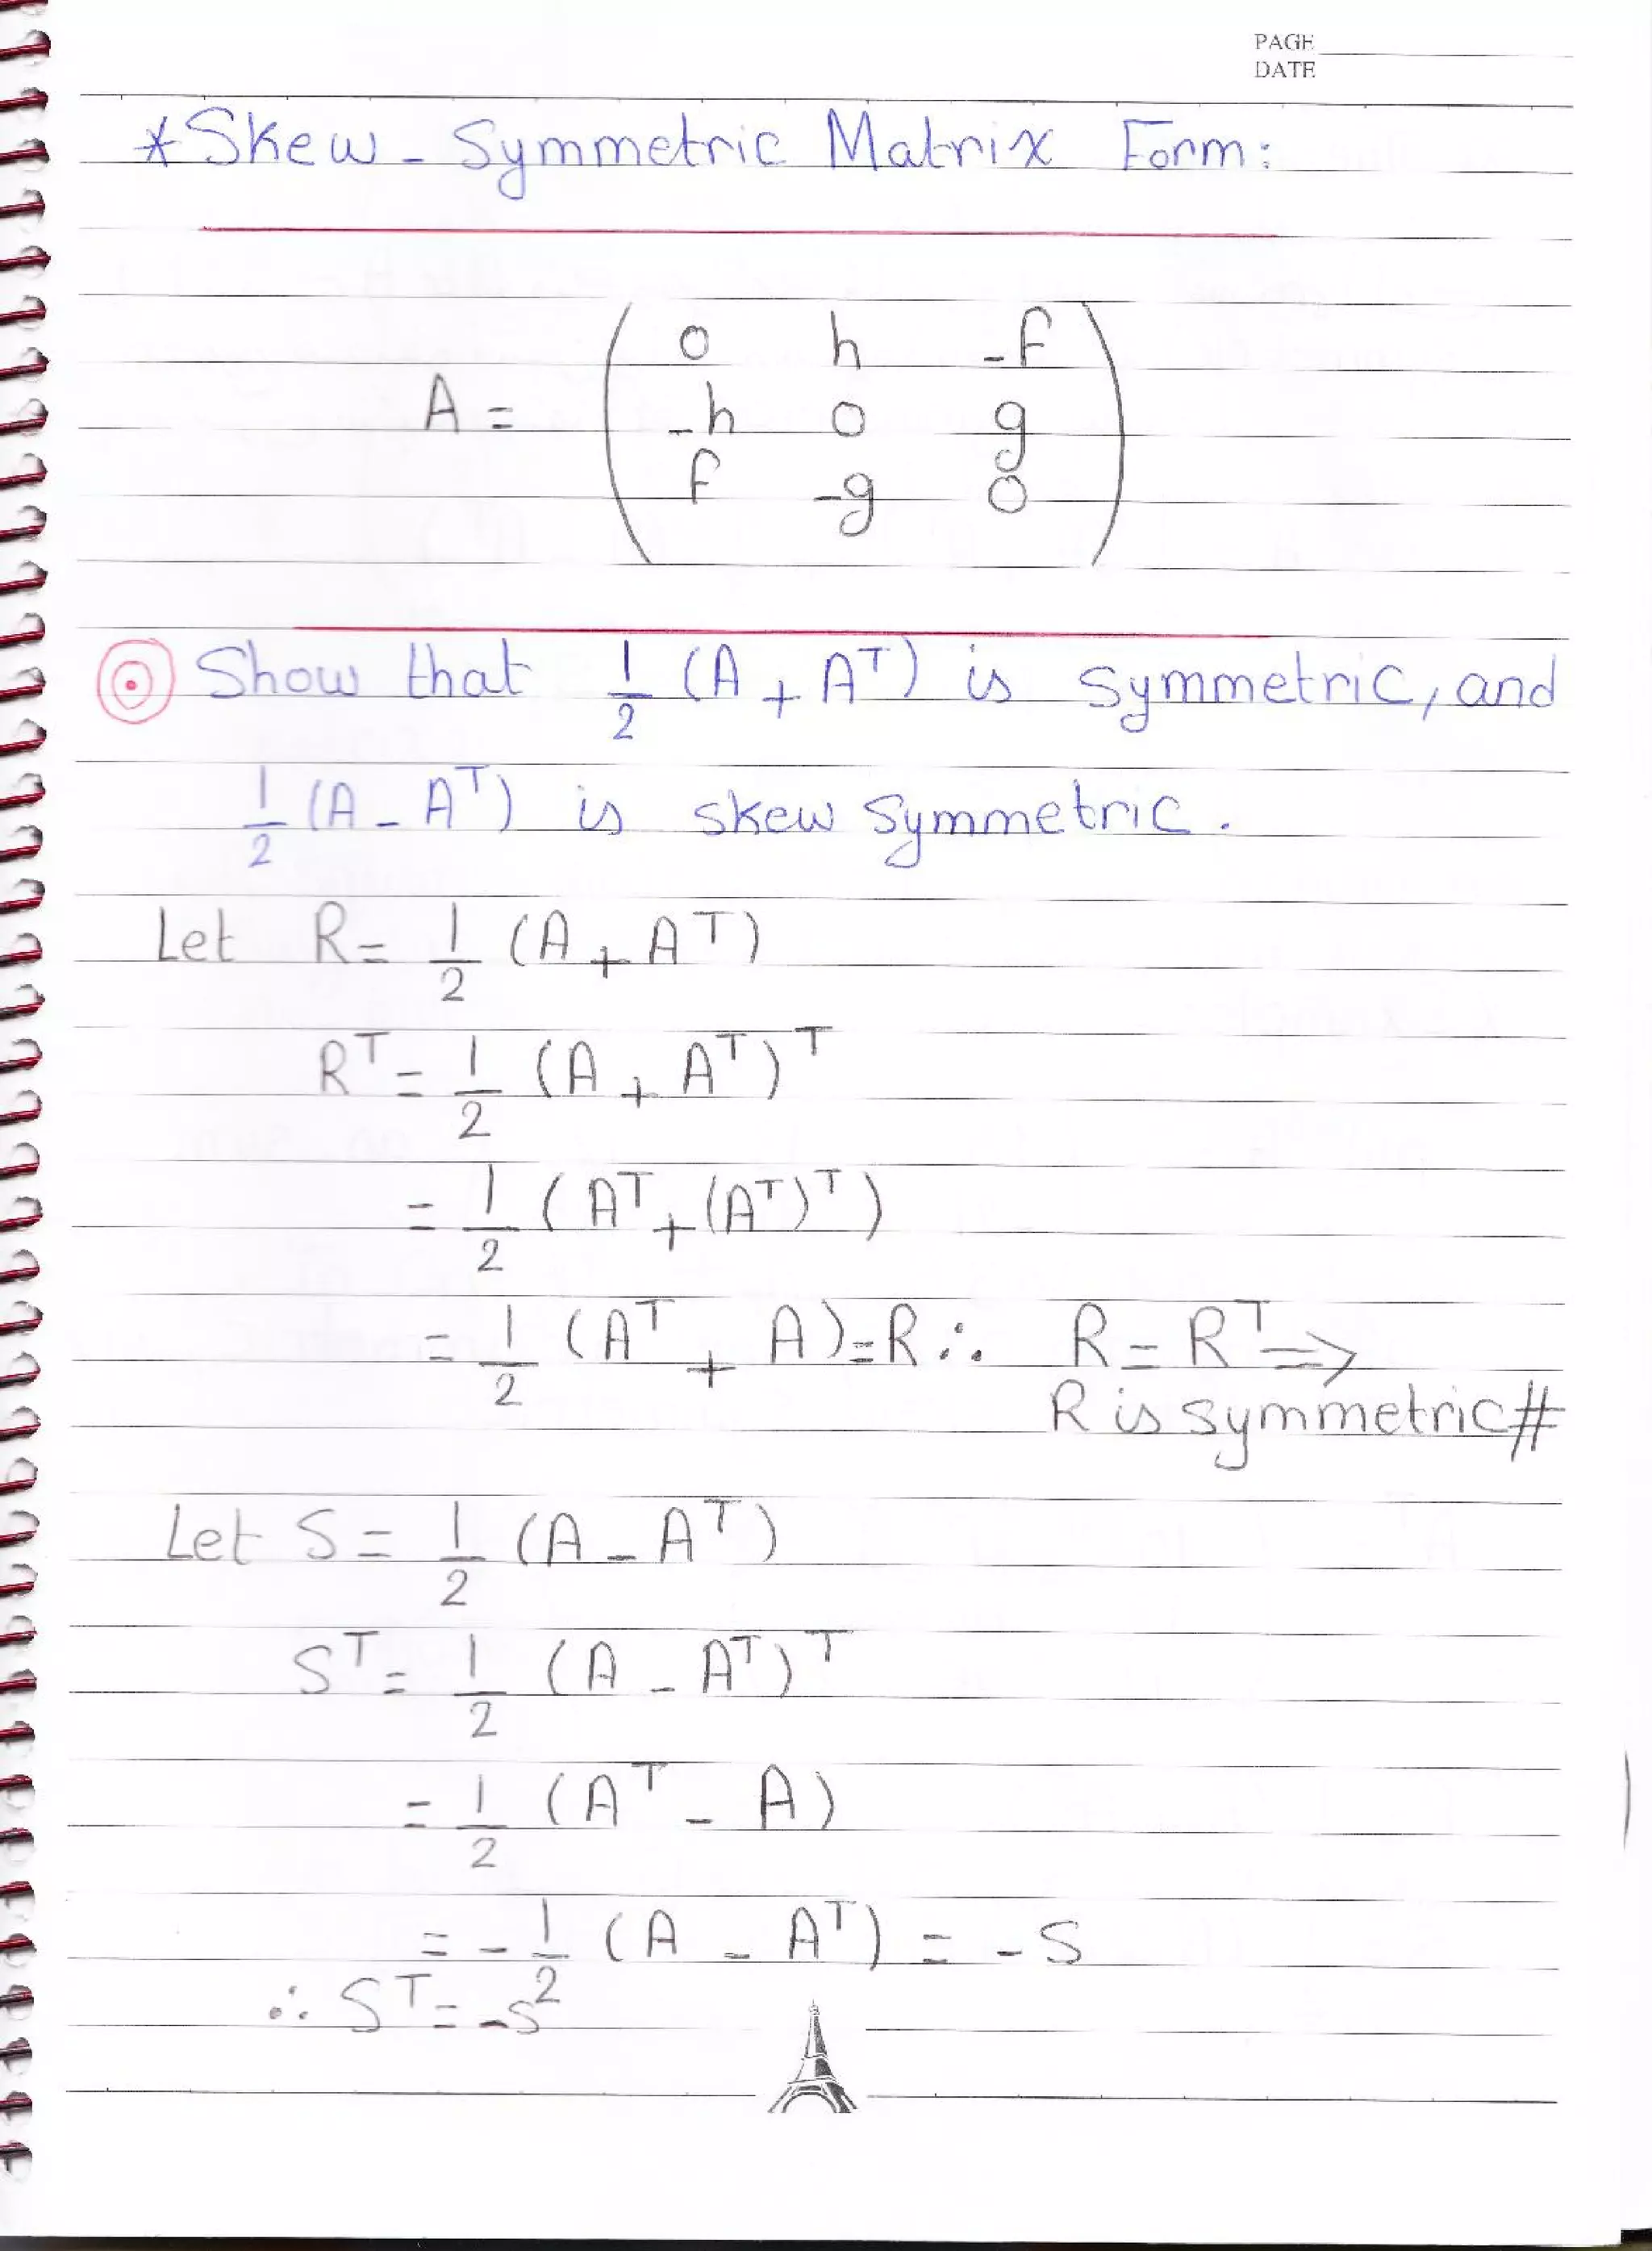 PAGE
DATE
*Skew-Symmetric Matrix Form:
A = ( 0 h -f
-h 0 g
f -g 0 )
Show that 1/2 (A + Aᵀ) is symmetric, and
1/2 (A - Aᵀ) is skew symmetric.
Let R = 1/2 (A + Aᵀ)
Rᵀ = 1/2 (A + Aᵀ)ᵀ
= 1/2 (Aᵀ + (Aᵀ)ᵀ)
= 1/2 (Aᵀ + A) = R ∴ R = Rᵀ ⇒
R is symmetric #
Let S = 1/2 (A - Aᵀ)
Sᵀ = 1/2 (A - Aᵀ)ᵀ
= 1/2 (Aᵀ - A)
= - 1/2 (A - Aᵀ) = -S
∴ Sᵀ = -S